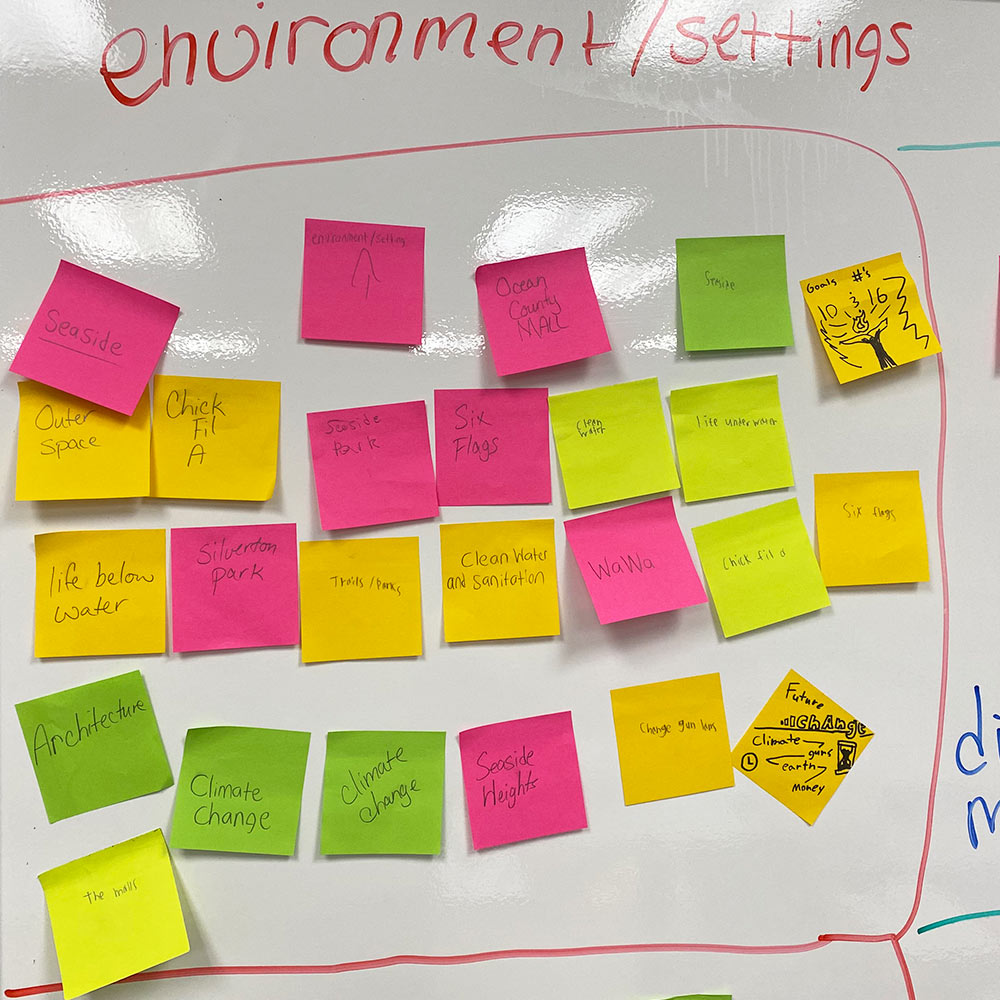 environment/settings
environment/setting
Seaside
Ocean
County
MALL
Goals #'s
10 13 16
Outer
Space
Chick
Fil
A
Seaside
Park
Six
Flags
Clean
water
life under water
Six flags
life below
water
Silverton
park
Trails/parks
Clean Water
and Sanitation
WaWa
Chick fil a
Architecture
Climate
Change
climate
change
Seaside
Heights
Change gun laws
Future
change
Climate
guns
earth
Money
the malls